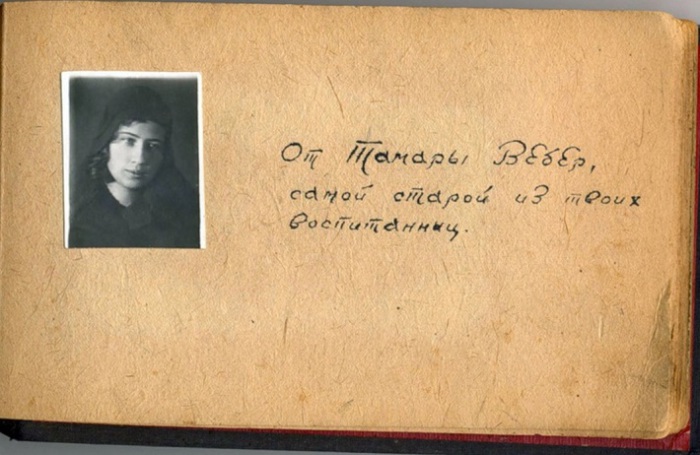 От Тамары Вебер,
самой старой из твоих
воспитанниц.